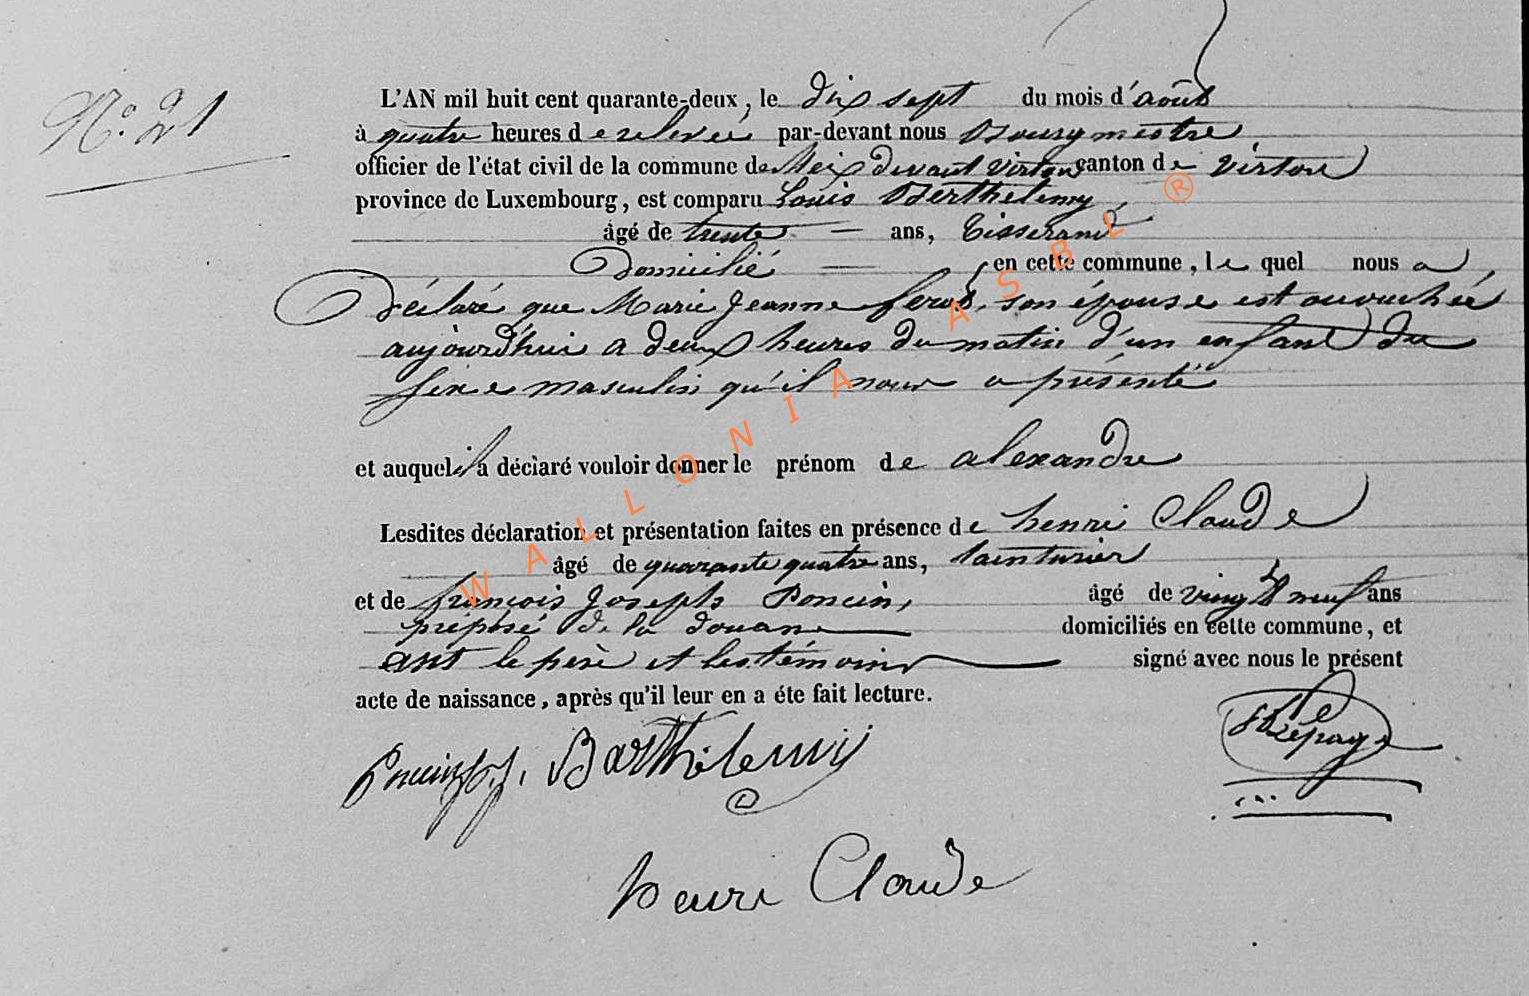 N.° 21
L'AN mil huit cent quarante-deux, le dix sept du mois d'août
à quatre heures de relevée par-devant nous Bourgmestre
officier de l'état civil de la commune de Meix devant Virton canton de Virton
province de Luxembourg, est comparu Louis Berthelemy
âgé de trente — ans, Tisserand
Domicilié — en cette commune, lequel nous a
Déclaré que Marie Jeanne son épouse est accouchée
aujourd'hui a deux heures du matin d'un enfant du
sexe masculin qu'il nous a présenté
et auquel il a déclaré vouloir donner le prénom de alexandre
Lesdites déclaration et présentation faites en présence de henri Claude
âgé de quarante quatre ans, tainturier
et de françois Joseph Poncin, âgé de vingt neuf ans
préposé de la douane domiciliés en cette commune, et
ont le père et les témoins signé avec nous le présent
acte de naissance, après qu'il leur en a éte fait lecture.
Barthélemy
Lepage
henri Claude
WALLONIA ASBL ®